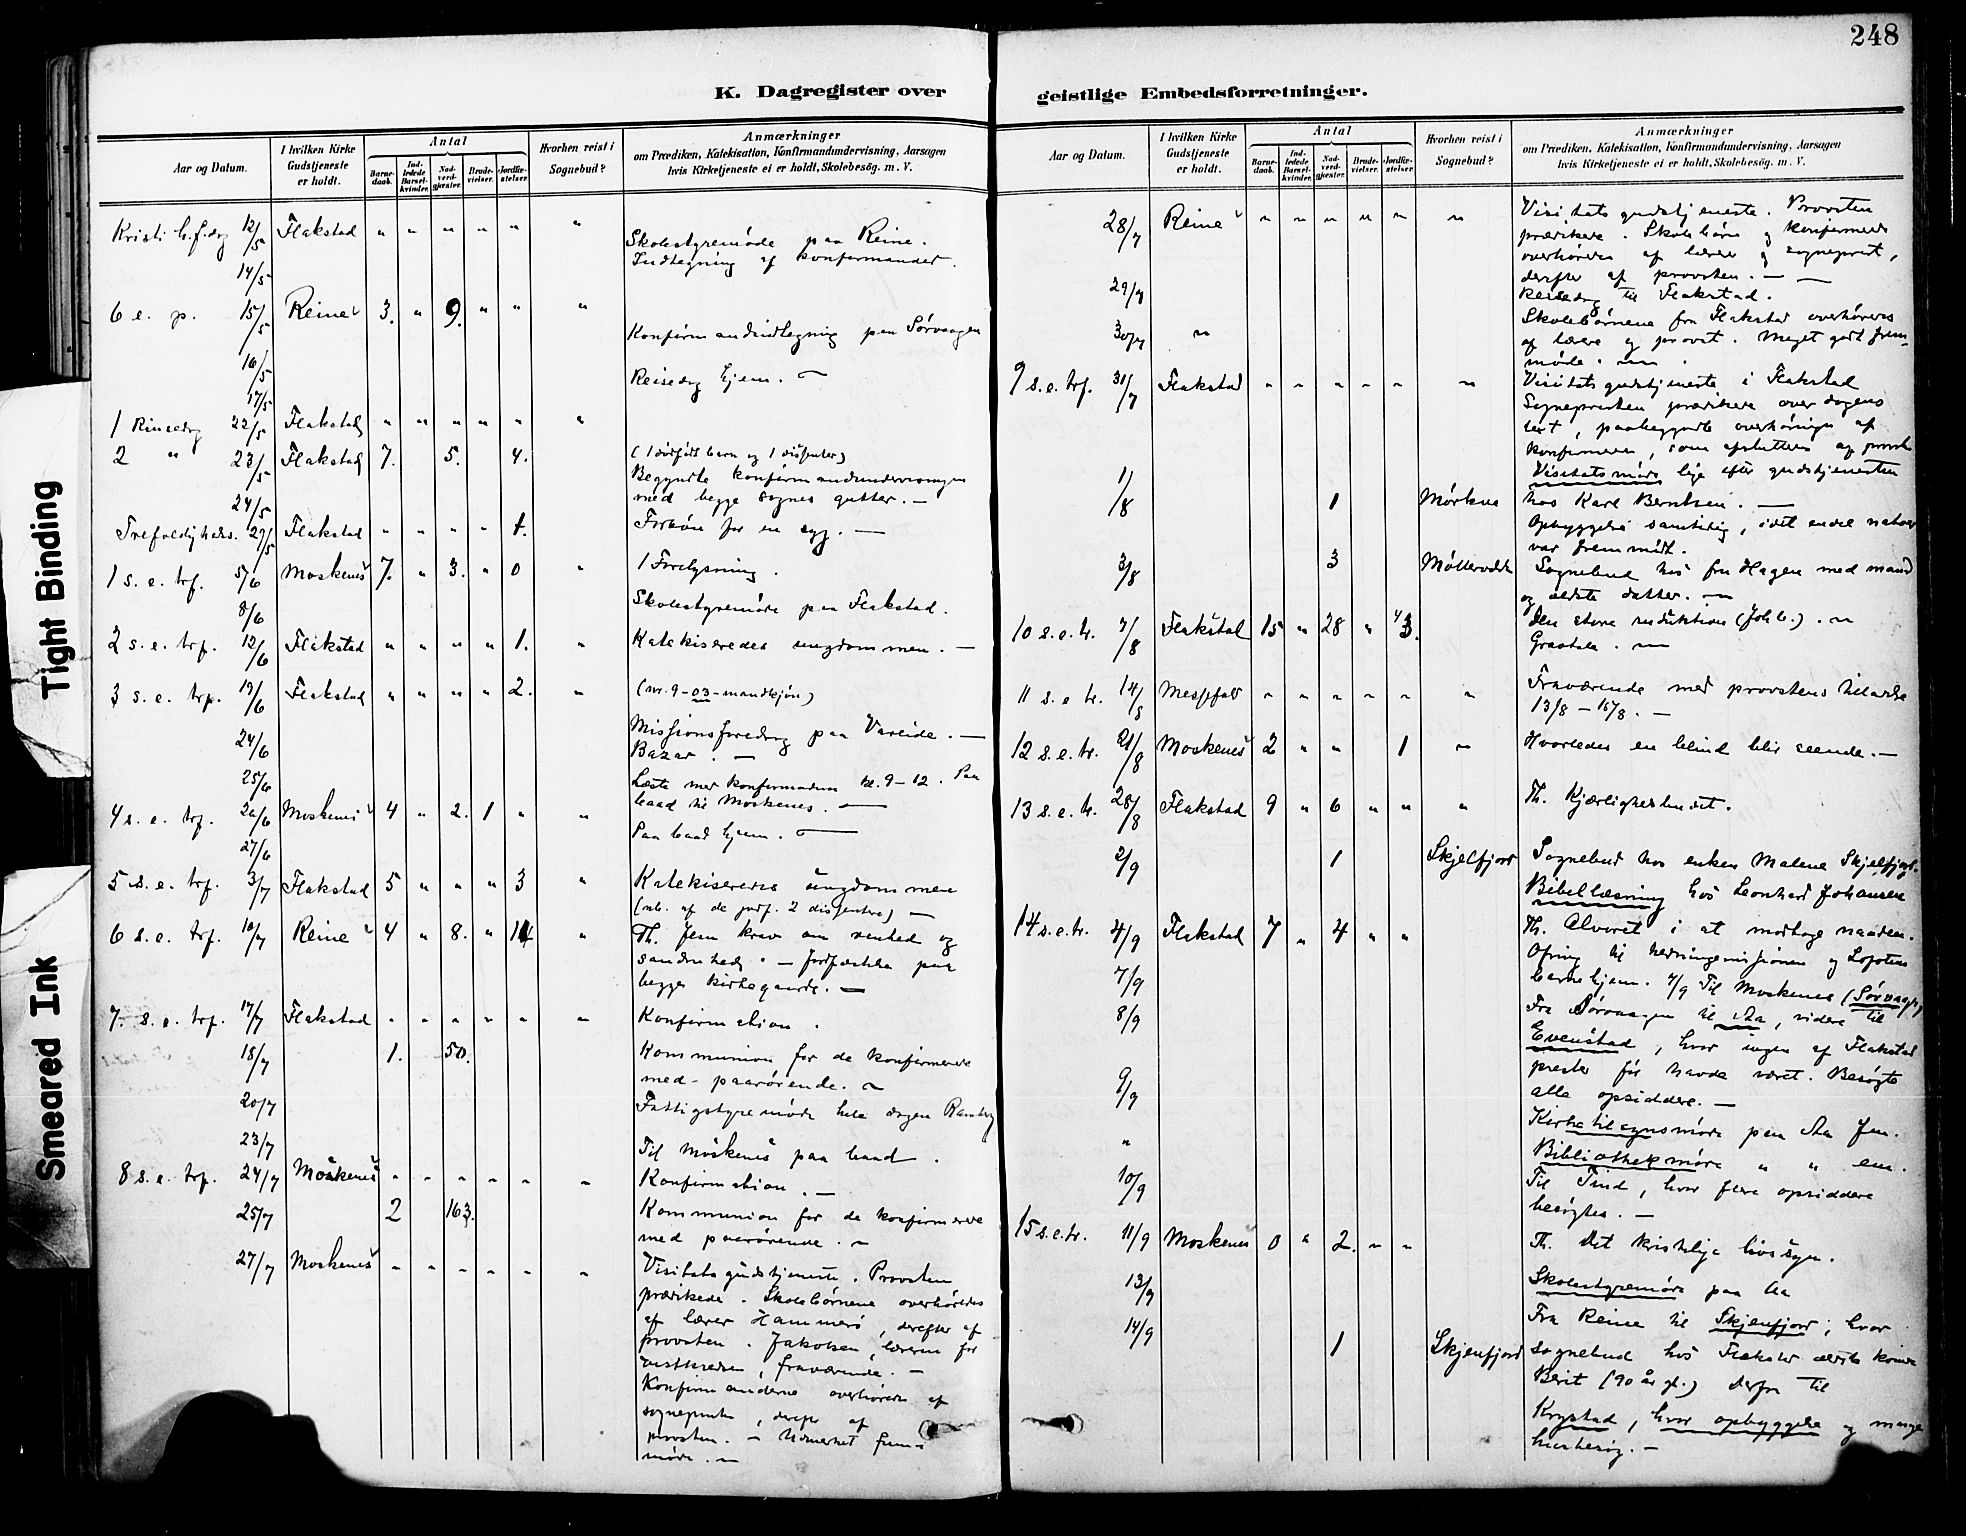 248
K. Dagregister over
geistlige Embedsforretninger.
Tight Binding
Smeared Ink
Aar og Datum.
I hvilken Kirke Gudstjeneste er holdt.
Antal
Barnedaab.
Indledede Barselkvinder.
Nadverdgjæster.
Brudevielser.
Jordfæstelser.
Hvorhen reist i Sognebud?
Anmærkninger
om Prædiken, Katekisation, Konfirmandundervisning, Aarsagen
hvis Kirketjeneste ei er holdt, Skolebesøg. m. V.
Kristi h.f.dag 12/5 Flakstad " " " " " "
Skolestyremøde paa Reine.
14/5 Indtegning af konfirmander.
6 e. p. 15/5 Reine 3. " 9. " " "
16/5 Konfirmandindtegning paa Sørvaagen
17/5 Reisedag hjem. —
1 Pinsedag 22/5 Flakstad " " " " "
2 " 23/5 Flakstad 7. 5. 4. (1 dødfødt barn og 1 dissenter)
24/5 Begyndte konfirmandundervisningen
med begge sognes gutter. —
Trefoldigheds. 29/5 Flakstad " " " " 1. Forbøn for en syg. —
1 s. e. trf. 5/6 Moskenes 7. " 3. " 0 " 1 Forelysning.
8/6 Skolestyremøde paa Flakstad.
2 s. e. trf. 12/6 Flakstad " " " " 1. " Katekiseredes ungdommen. —
3 s. e. trf. 19/6 Flakstad " " " " 2. " (nr. 9-03-mandkjøn)
24/6 Missionsforedrag paa Vareide. —
Bazar. —
25/6 Læste med konfirmandern kl. 9-12. Paa
baad til Moskenes. —
4 s. e. trf. 26/6 Moskenes 4 " 2. 1 " "
27/6 Paa baad hjem. —
5 s. e. trf. 3/7 Flakstad 5 " " " 3 " Katekiseredes ungdommen
(nb. af de jordf. 2 dissentere) —
6 s. e. trf. 10/7 Reine 4 " 8. " 14 " Th. Jesu krav om renhed og
sandenhed. — Jordfæstelse paa
begge kirkegaarde. —
7. s. e. trf. 17/7 Flakstad " " " " " " Konfirmation.
18/7 1. 50. Kommunion for de konfirmerede
med paarørende. —
20/7 Fattigstyremøde hele dagen Ramberg
23/7 Til Moskenes paa baad.
8 s. e. trf. 24/7 Moskenes " " " " " " Konfirmation. —
25/7 2 163. Kommunion for de konfirmerede
med paarørende. —
27/7 Moskenes " " " " " " Visitatsgudstjeneste. Provsten
prædikede. Skolebørnene overhøredes
af lærer Hammerö, derefter af
provsten. Jakobsen, læreren for
fraværende. —
Konfirmanderne overhøredes af
sognepresten, derefter af
provsten. — Udmerket frem-
møde. —
28/7 Reine " " " " " " Visitatsgudstjeneste. Provsten
prædikede. Skolebörn og konfirmerede
overhøredes af lærer og sogneprest,
derefter af provsten. —
29/7 Reisedag til Flakstad.
30/7 " Skolebörnene fra Flakstad overhøredes
af lærere og provst. Meget godt frem-
møde. —
9 s. e. trf. 31/7 Flakstad " " " " " " Visitatsgudstjeneste i Flakstad
Sognepresten prædikede over dagens
text, paabegyndte overhøringen af
konfirmerede, som afsluttedes af provst
Visitatsmøde lige efter gudstjenesten
1/8 1 Mørkved hos Karl Berntsen. —
Opbyggelse samtidig, idet endel naboer
var fremmødt.
3/8 3 Möllerodden Sognebud hos fru Hagen med mand
og ældste datter. —
10 s. e. tr. 7/8 Flakstad 15 " 28 " 3. Den store reduktion (Joh b.). —
Graatale. —
11 s. e. tr. 14/8 Messefald " " " " " " Fraværende med provstens tilladelse
13/8 – 15/8. —
12 s. e. tr. 21/8 Moskenes 2 " " 1 " Hvorledes en blind blir seende. —
13 s. e. tr. 28/8 Flakstad 9 " 6 " " " Th. Kjærlighedsbudet.
2/9 1 Skjelfjord Sognebud hos enken Malene Skjelfjord.
Bibellæsning hos Leonhard Johansen
14 s. e. tr. 4/9 Flakstad 7 " 4 " " Th. Alvoret i at modtage naaden.
Ofring til hedningemissionen og Lofotens
barnehjem. 7/9 Til Moskenes (Sørvaagen)
7/9
8/9 Fra Sørvaagen til Aa, videre til
Evenstad, hvor ingen af Flakstad
prester før havde været. Besøgte
alle opsiddere. —
9/9 Kirketilsynsmøde paa Aa fm.
" Bibliothekmøde " " em.
10/9 Til Tind, hvor flere opsiddere
besøgtes. —
15 s. e. tr. 11/9 Moskenes 0 " 2. " " Th. Det kristelige livssyn.
13/9 Skolestyremøde paa Aa
14/9 Fra Reine til Skjenfjord, hvor
1 Skjenfjord sognebud hos Flakstad ældste kvinde
Berit (90 år gl.) Derfra til
Krystad, hvor opbyggelse og mange
husbesøg. —